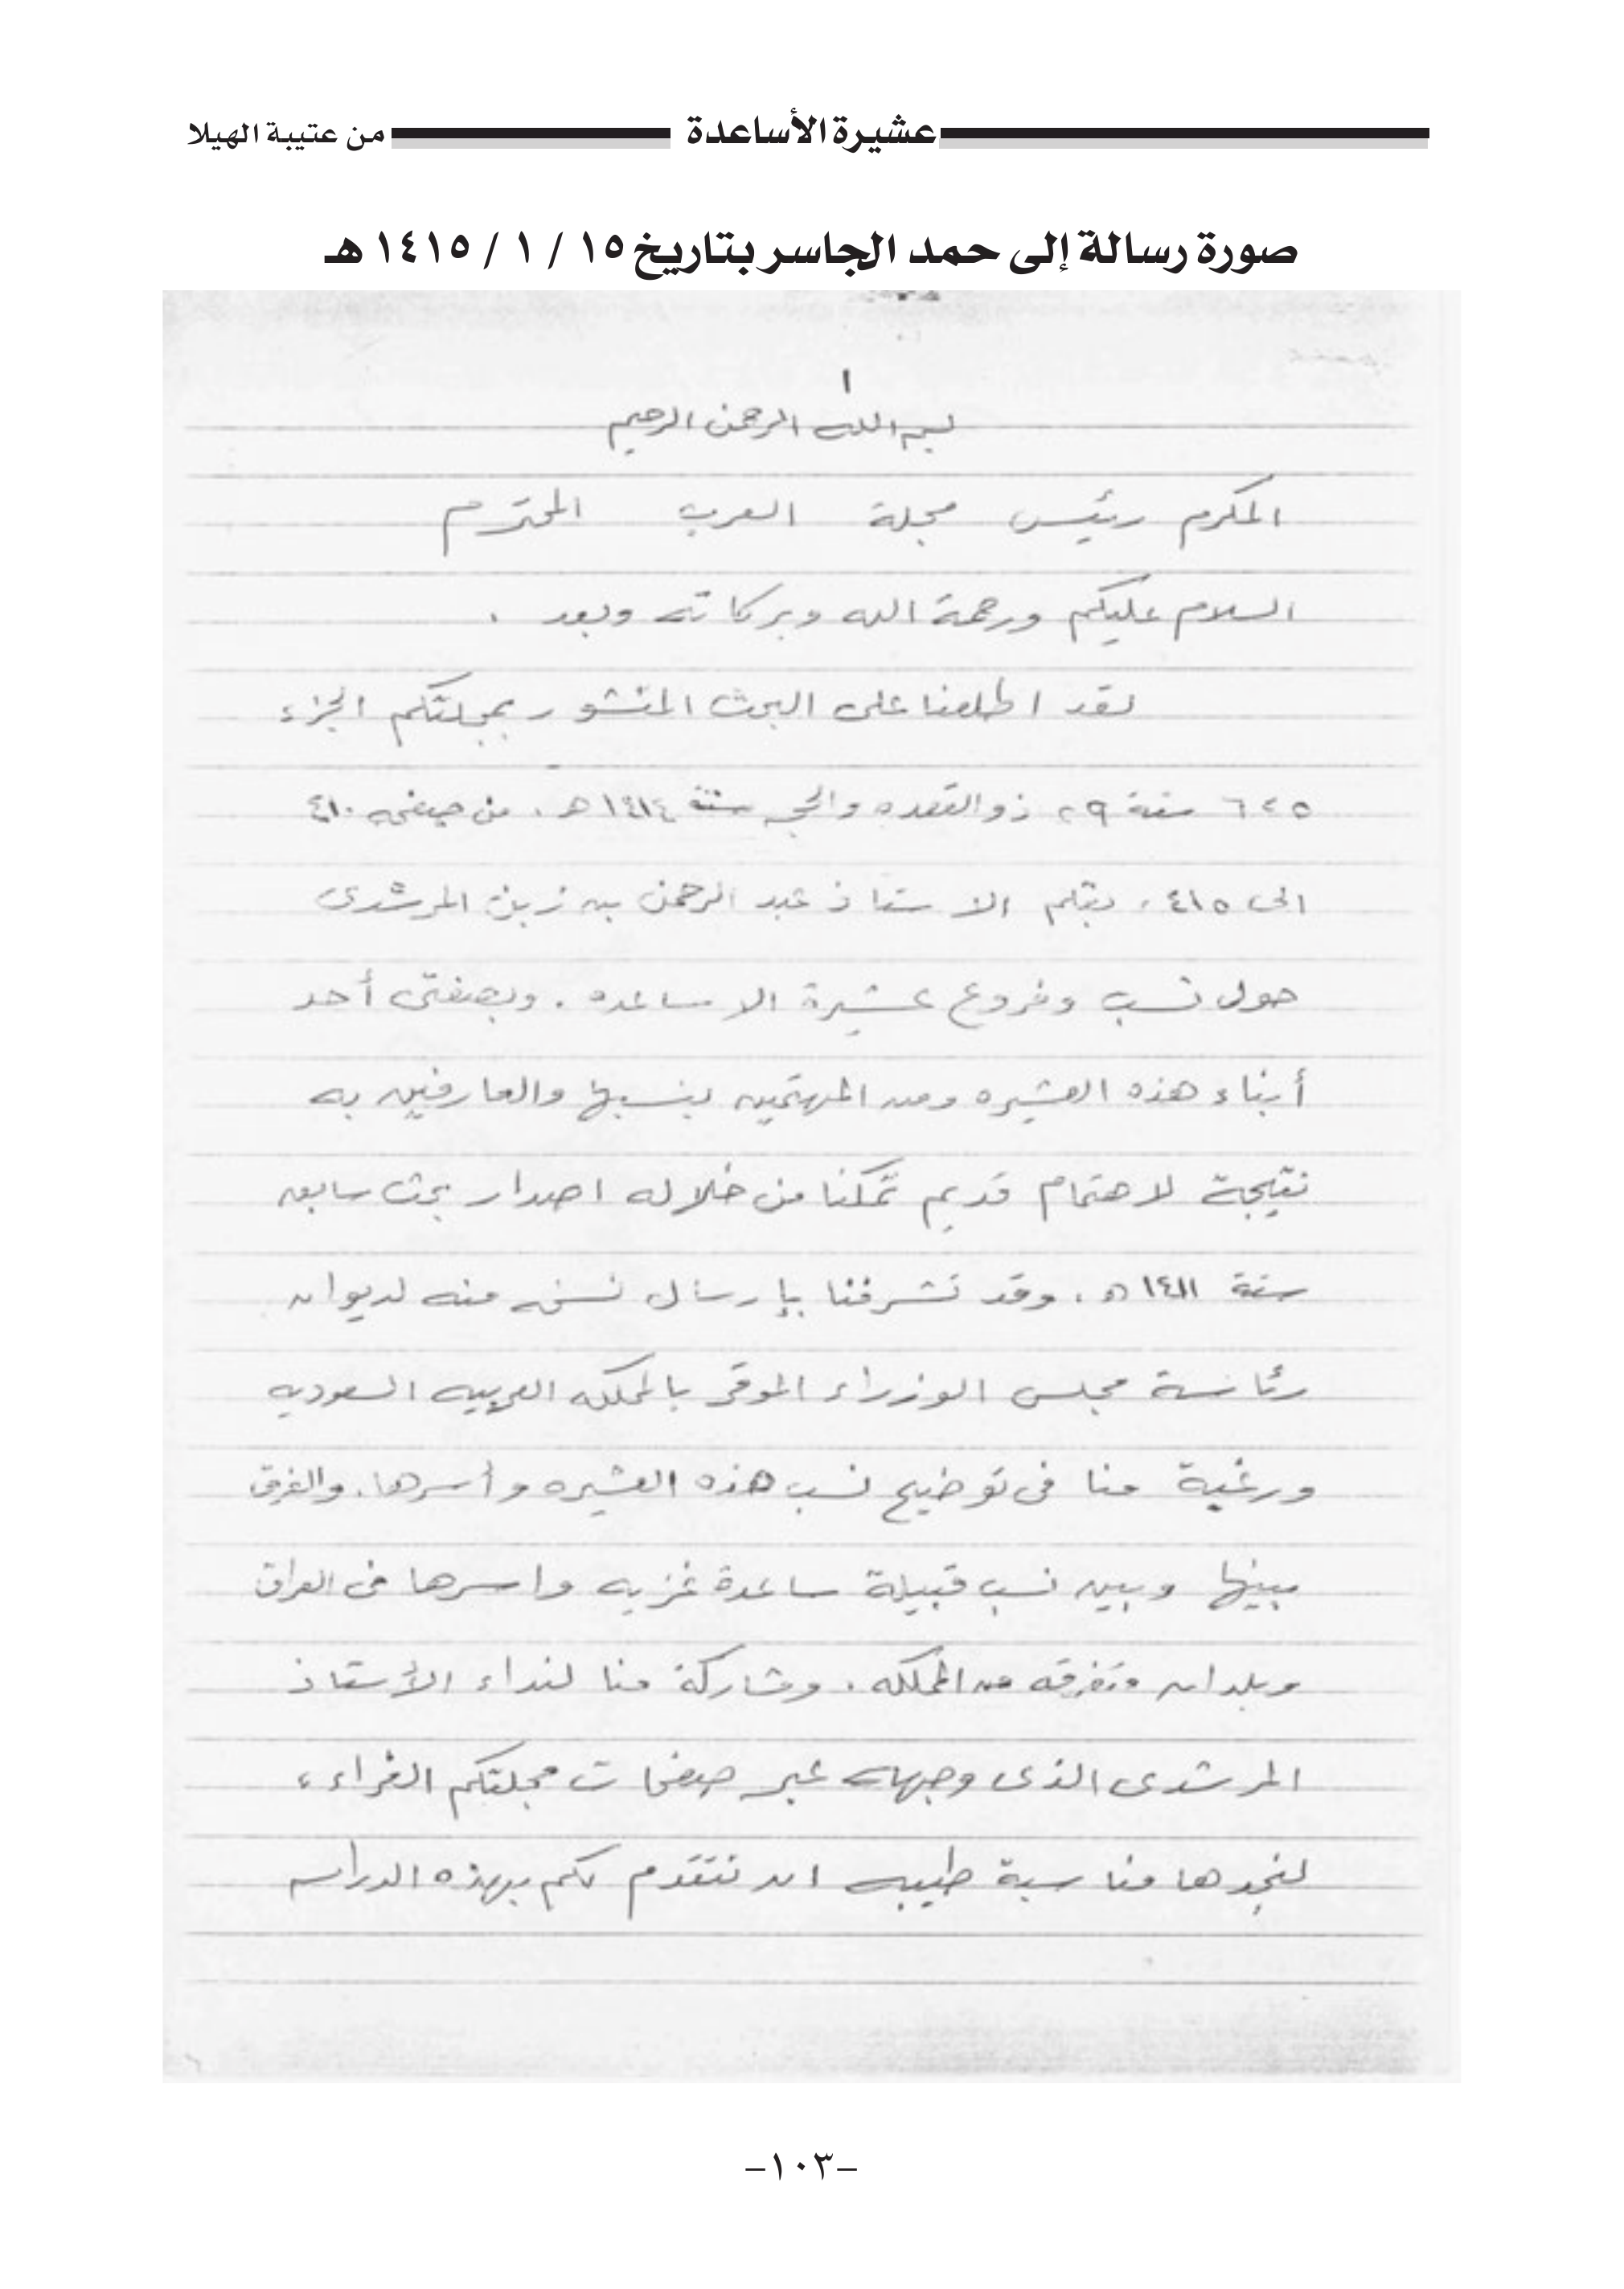 عشيرة الأساعدة من عتيبة الهيلا
صورة رسالة إلى حمد الجاسر بتاريخ ١٥ / ١ / ١٤١٥ هـ
١
بسم الله الرحمن الرحيم
المكرم رئيس مجلة العرب المحترم
السلام عليكم ورحمة الله وبركاته وبعد .
لقد اطلعنا على البحث المنشور بمجلتكم الجزء
٦،٥ سنة ٢٩ ذو القعده والحجه سنة ١٤١٤ هـ . من صفحه ٤١٠
الى ٤١٥ ، بقلم الاستاذ عبد الرحمن بن زبن المرشدى
حول نسب وفروع عشيرة الاساعده . وبصفتى أحد
أبناء هذه العشيره ومن المهتمين بنسبها والعارفين به
نتيجة لاهتمام قديم تمكنا من خلاله اصدار بحث سابق
سنة ١٤١١ هـ . وقد تشرفنا بإرسال نسخه منه لديوان
رئاسة مجلس الوزراء الموقر بالمملكه العربيه السعوديه
ورغبة منا فى توضيح نسب هذه العشيره وأسرها . والفرق
بينها وبين نسب قبيلة ساعدة غزيه واسرها فى العراق
وبلدان متفرقه من المملكه . ومشاركة منا لنداء الأستاذ
المرشدى الذى وجهه عبر صفحات مجلتكم الغراء ،
لنجدها مناسبة طيبه ان نتقدم لكم بهذه الدراسه
–١٠٣–